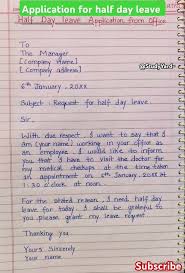 Application for half day leave
Half Day leave Application from Office
To
The Manager
[Company Name]
[Company address]
@StudyYard
6th January, 20XX
Subject : Request for half day leave.
Sir,
With due respect, I want to say that I
am [your name] working in your office as
an employee. I would like to inform
you that I have to visit the doctor for
my medical checkup at the time taken
an appointment on 6th January, 20XX at
1:30 o'clock at noon.
For the stated reason, I need half day
leave for today. I shall be grateful to
you please grant my leave request
Thanking you
Yours Sincerely
Your name
Subscribe